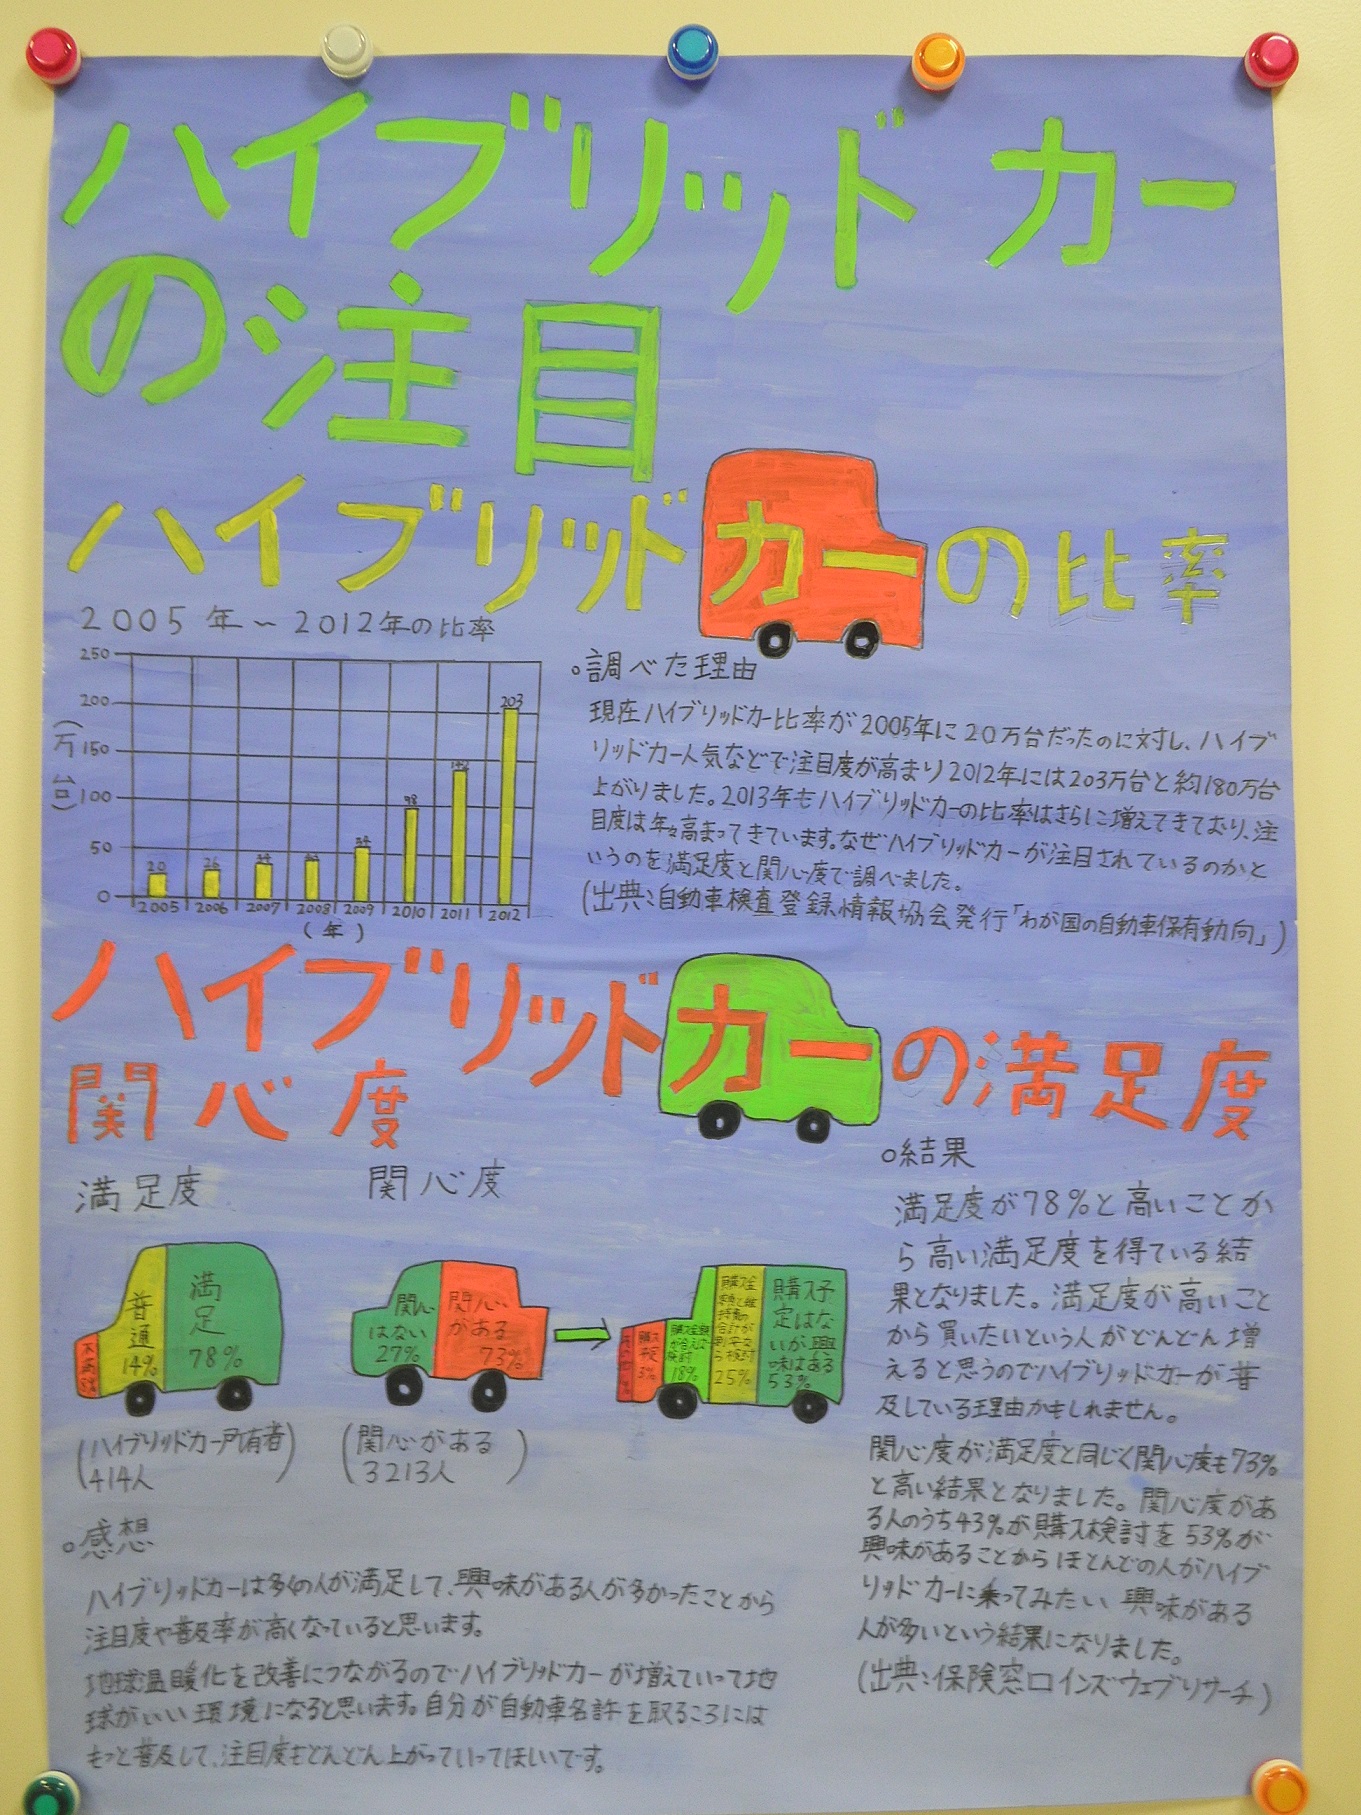 ハイブリッドカー
の注目
ハイブリッドカーの比率
2005年～2012年の比率
250
200
150
100
50
0
(万台)
20
26
34
42
54
98
142
203
2005 2006 2007 2008 2009 2010 2011 2012
(年)
○調べた理由
現在ハイブリッドカー比率が2005年に20万台だったのに対し、ハイブ
リッドカー人気などで注目度が高まり2012年には203万台と約180万台
上がりました。2013年もハイブリッドカーの比率はさらに増えてきており、注
目度は年々高まってきています。なぜハイブリッドカーが注目されているのかと
いうのを満足度と関心度で調べました。
(出典:自動車検査登録情報協会発行「わが国の自動車保有動向」)
ハイブリッドカーの満足度
関心度
満足度
不満8%
普通
14%
満足
78%
(ハイブリッドカー所有者)
414人
関心度
関心
はない
27%
関心
がある
73%
(関心がある)
3213人
3%
18%
25%
購入予
定はな
いが興
味はある
53%
○結果
満足度が78%と高いことか
ら高い満足度を得ている結
果となりました。満足度が高いこと
から買いたいという人がどんどん増
えると思うのでハイブリッドカーが普
及している理由かもしれません。
関心度が満足度と同じく関心度も73%
と高い結果となりました。関心度があ
る人のうち43%が購入検討を53%が
興味があることからほとんどの人がハイブ
リッドカーに乗ってみたい興味がある
人が多いという結果になりました。
(出典:保険窓口インズウェブリサーチ)
○感想
ハイブリッドカーは多くの人が満足して、興味がある人が多かったことから
注目度や普及率が高くなっていると思います。
地球温暖化を改善につながるのでハイブリッドカーが増えていって地
球がいい環境になると思います。自分が自動車名許を取るころには
もっと普及して、注目度もどんどん上がっていってほしいです。